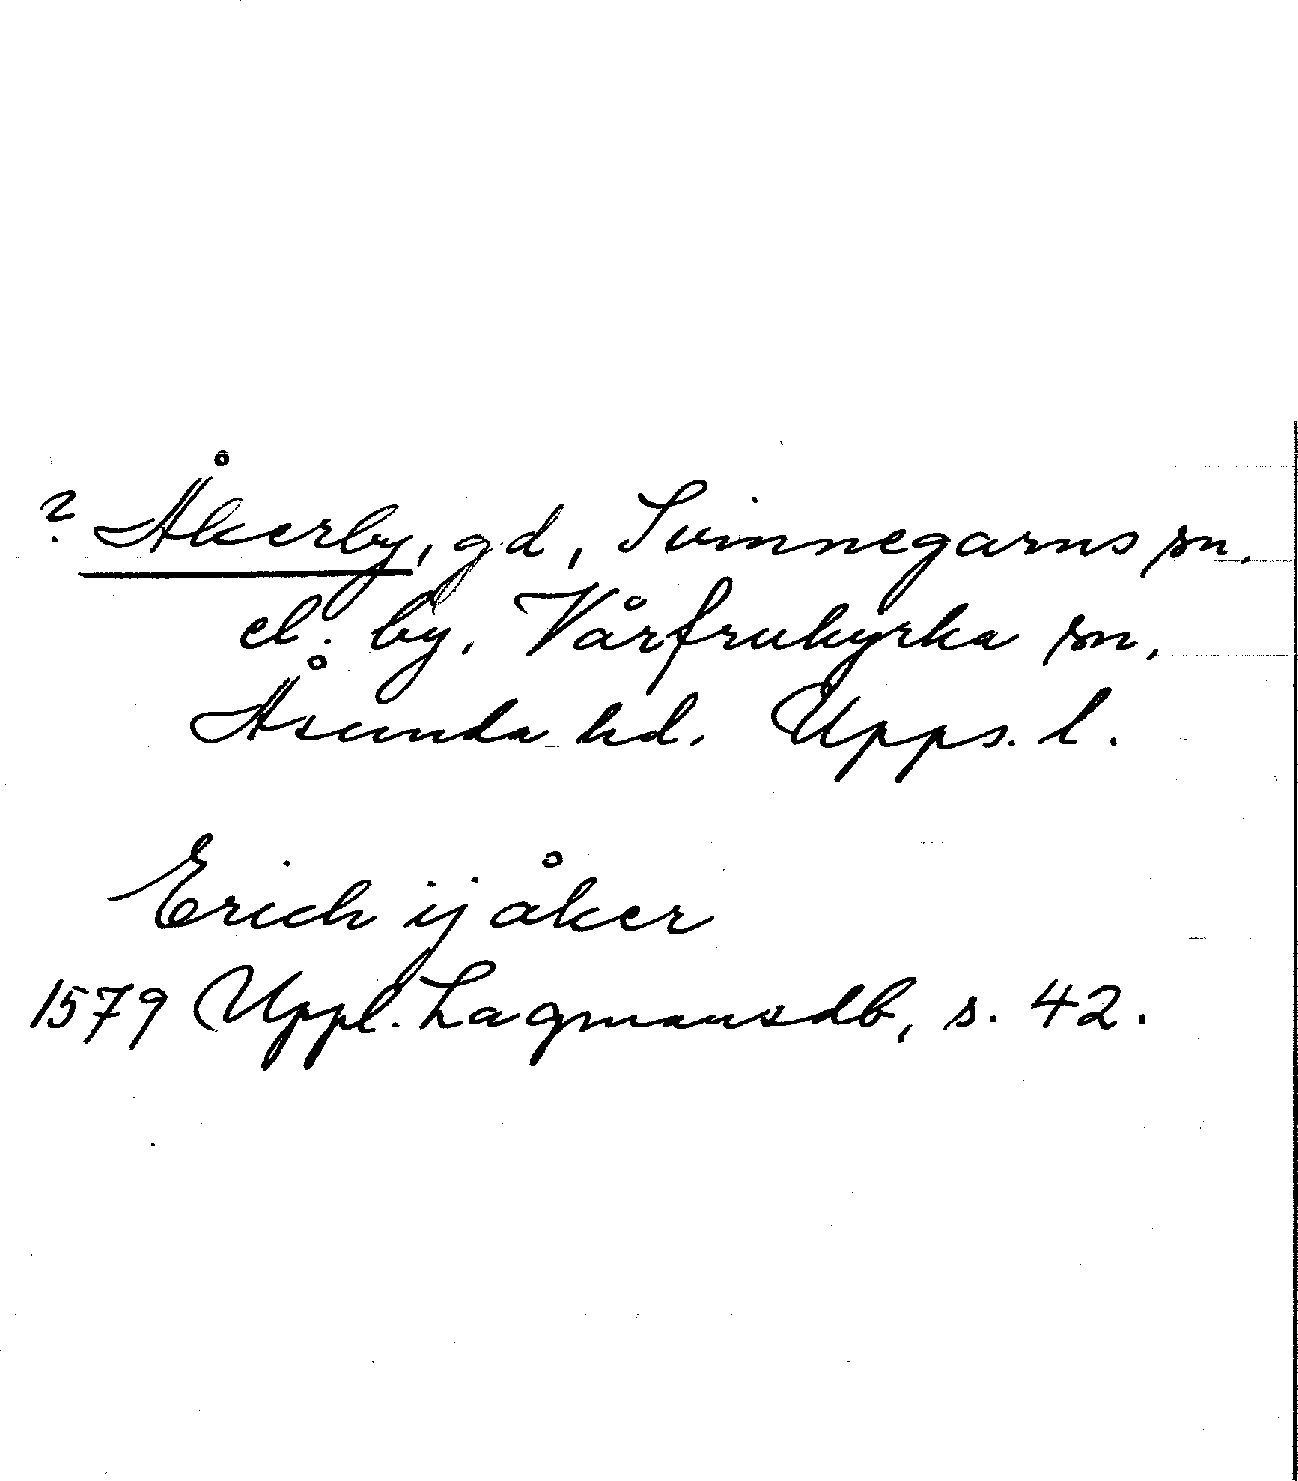 ? Åkerby, gd, Svinnegarns sn.
el. by, Vårfrukyrka sn,
Åsunda hd. Upps. l.
Erich ij åker
1579 Uppl. Lagmansdb, s. 42.